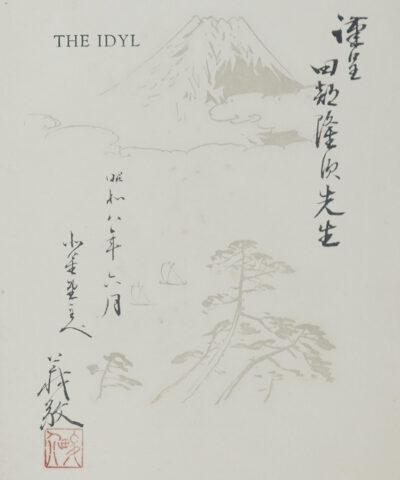 THE IDYL
謹呈
田部隆次先生
昭和八年六月
義敬